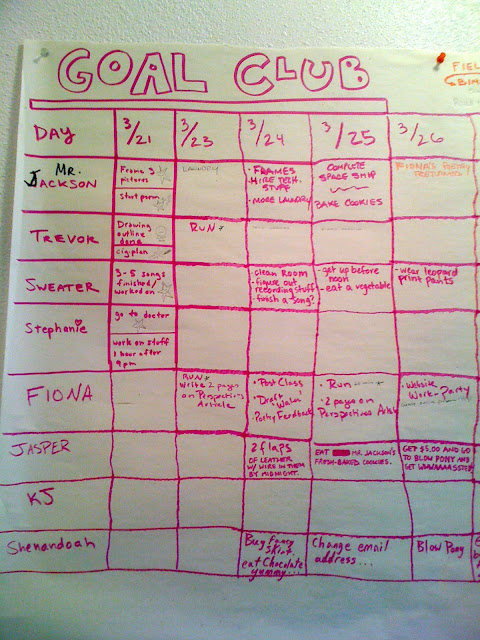 GOAL CLUB
FIEL
DAY
3/21
3/23
3/24
3/25
3/26
Mr.
JACKSON
Frame 3
pictures
start porm
LAUNDRY
• FRAMES
• HIRE TECH.
STUFF
• MORE LAUNDRY
COMPLETE
SPACE SHIP
BAKE COOKIES
FIONA'S
TREVOR
Drawing
outline
done
cig plan
RUN
SWEATER
3-5 songs
finished/
worked on
• clean Room
• figure out
recording stuff
• finish a song?
• get up before
noon
• eat a vegetable
• wear leopard
print pants
Stephanie
go to doctor
work on stuff
1 hour after
9pm
FIONA
RUN
Write 2 pages
on Perspectives
Article
• Post Class
• Draft
• Pothy Feedback
• Run
• 2 pages on
Perspectives Article
• Website
Work-Party
JASPER
2 flaps
OF LEATHER
W/ WIRE IN THEM
BY MIDNIGHT.
EAT MR. JACKSON'S
FRESH-BAKED COOKIES.
GET $5.00 AND GO
TO BLOW PONY AND
GET WWAAAASSTED
KJ
Shenandoah
Buy fancy
skirt.
eat Chocolate
yummy...
Change email
address...
Blow Pony